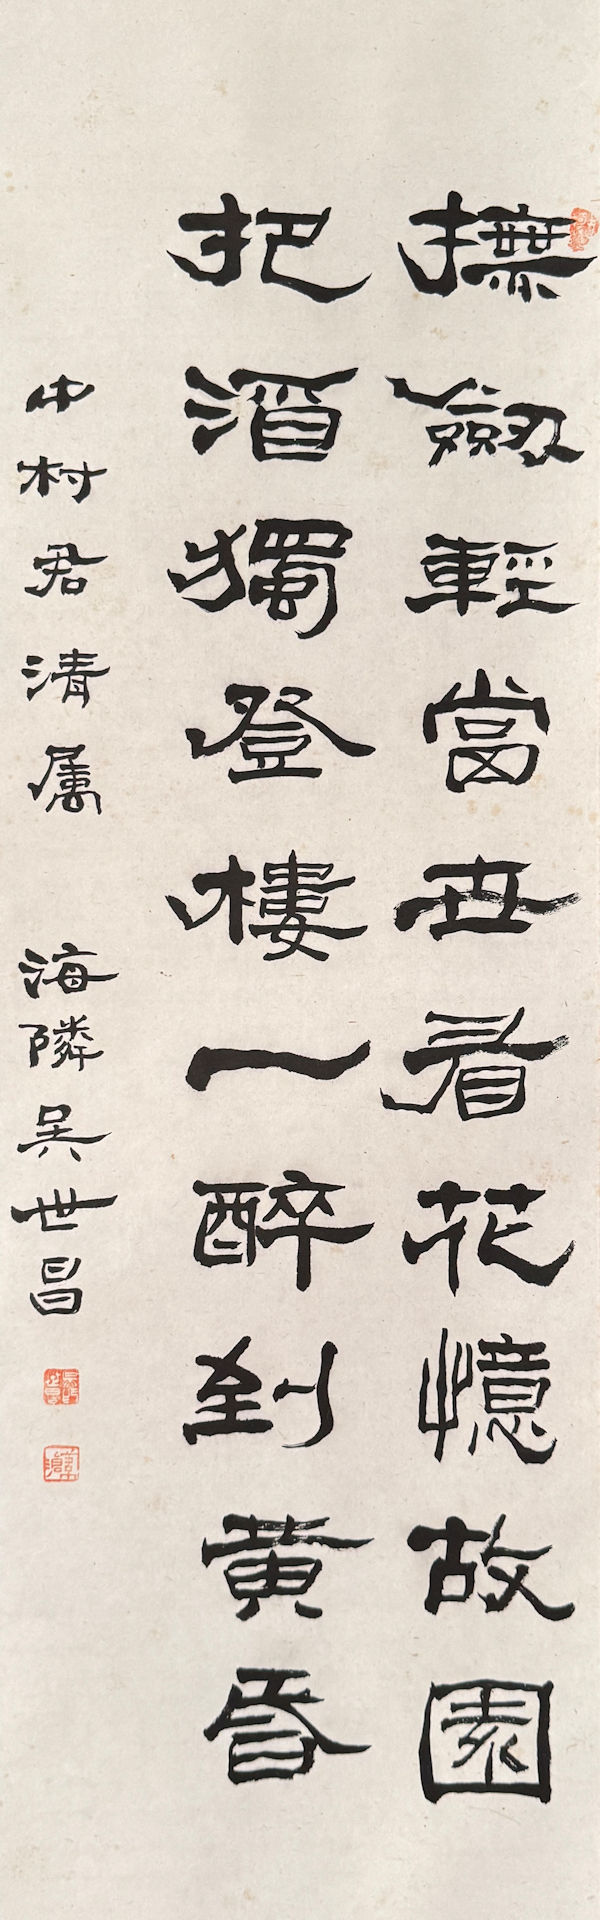 撫劔輕當世看花憶故園
把酒獨登樓一醉到黄昏
中村君清属 海隣吴世昌